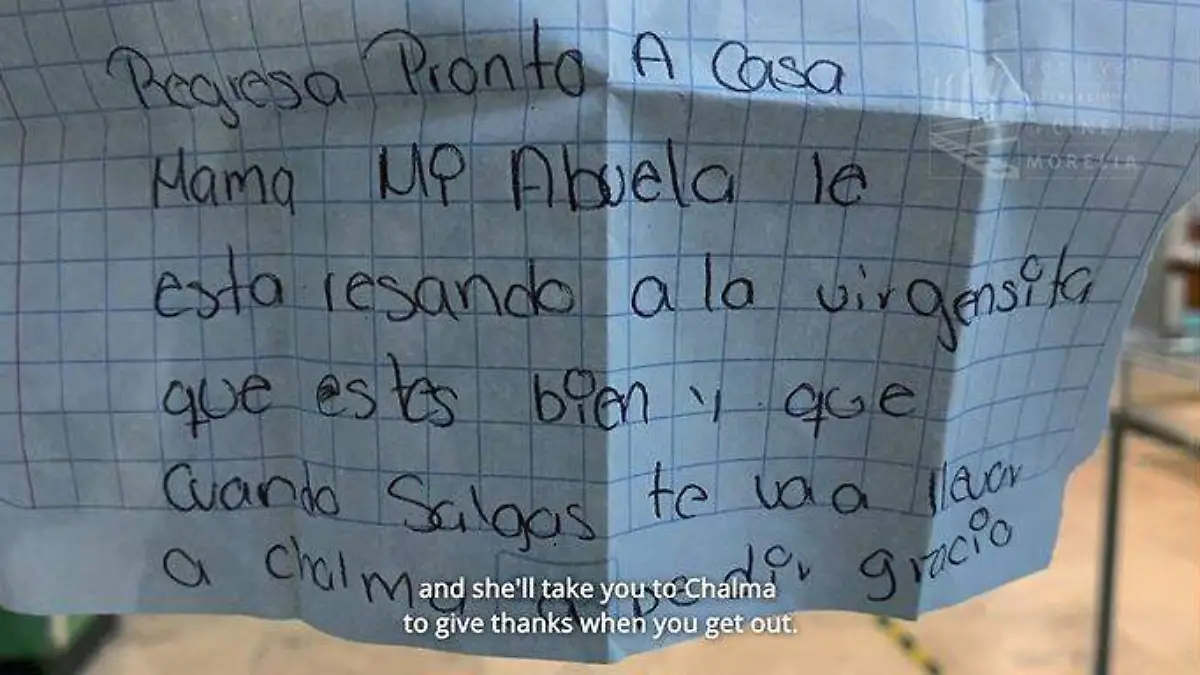 Regresa Pronto A Casa
Mama Mi Abuela le
esta resando a la virgensita
que estes bien y que
Cuando Salgas te va a llevar
a chalma a pedir gracia
and she'll take you to Chalma
to give thanks when you get out.
MORELIA